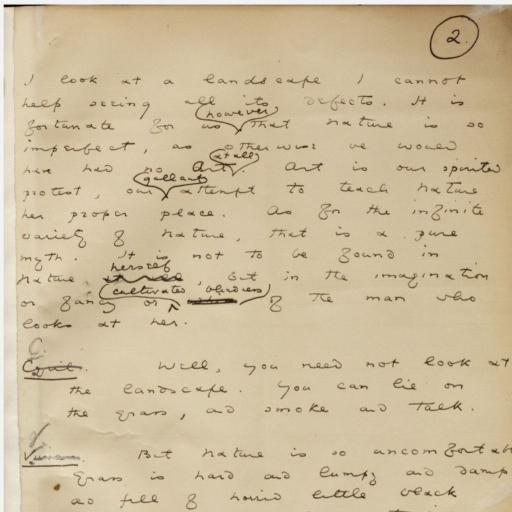 2.
I look at a landscape I cannot
help seeing all its defects. It is
however
fortunate for us, that nature is so
imperfect, as otherwise we would
at all
have had no Art. Art is our spirited
gallant
protest, our attempt to teach Nature
her proper place. As for the infinite
variety of Nature, that is a pure
myth. It is not to be found in
herself
Nature, but in the imagination
cultivated blindness
or fancy or of the man who
looks at her.
C.
Cyril. Well, you need not look at
the landscape. You can lie on
the grass, and smoke and talk.
V
But nature is so uncomfortab
grass is hard and lumpy and damp
and full of horrid little black